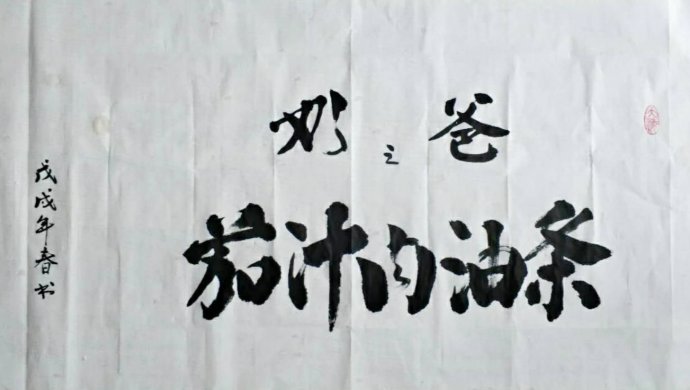 奶爸
之
茄汁肉油条
戊戌年春书